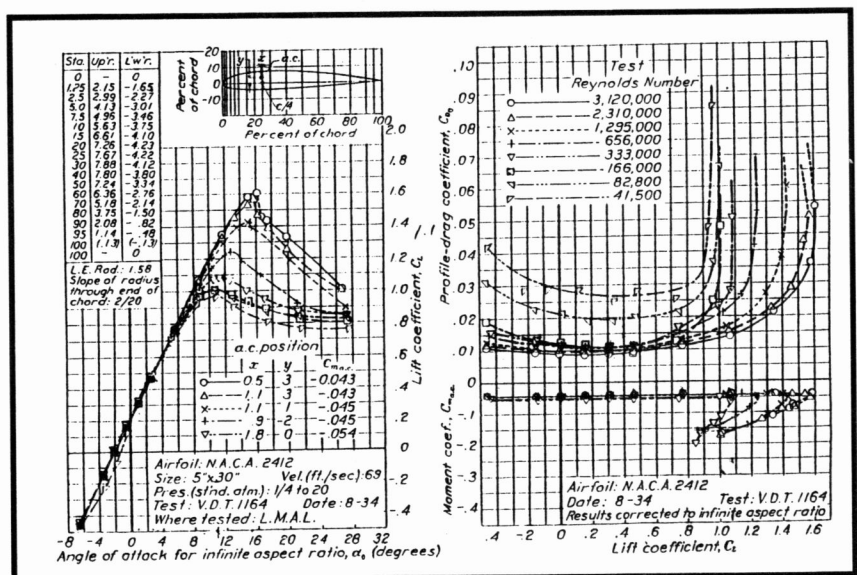 Sta. Up'r. L'w'r.
0 - 0
1.25 2.15 -1.65
2.5 2.99 -2.27
5.0 4.13 -3.01
7.5 4.96 -3.46
10 5.63 -3.75
15 6.61 -4.10
20 7.26 -4.23
25 7.67 -4.22
30 7.88 -4.12
40 7.80 -3.80
50 7.24 -3.34
60 6.36 -2.76
70 5.18 -2.14
80 3.75 -1.50
90 2.08 -.82
95 1.14 -.48
100 (.13) (-.13)
100 - 0
L.E. Rad.: 1.58
Slope of radius
through end of
chord: 2/20
Percent
of chord
20
10
0
-10
y
x
a.c.
c/4
0 20 40 60 80 100
Percent of chord
2.0
1.8
1.6
1.4
1.2
1.0
.8
.6
.4
.2
0
-.2
-.4
/.1
Lift coefficient, CL
a.c. position
x y Cma.c.
0.5 3 -0.043
1.1 3 -.043
1.1 1 -.045
.9 -2 -.045
1.8 0 -.054
Airfoil: N.A.C.A. 2412
Size: 5"x30" Vel.(ft./sec): 69
Pres.(st'nd. atm.): 1/4 to 20
Test: V.D.T. 1164 Date: 8-34
Where tested: L.M.A.L.
-8 -4 0 4 8 12 16 20 24 28 32
Angle of attack for infinite aspect ratio, α0 (degrees)
.10
.09
.08
.07
.06
.05
.04
.03
.02
.01
0
-.1
-.2
-.3
-.4
Profile-drag coefficient, CD0
Moment coef., Cma.c.
Test
Reynolds Number
3,120,000
2,310,000
1,295,000
656,000
333,000
166,000
82,800
41,500
Airfoil: N.A.C.A. 2412
Date: 8-34 Test: V.D.T. 1164
Results corrected to infinite aspect ratio
-.4 -.2 0 .2 .4 .6 .8 1.0 1.2 1.4 1.6
Lift coefficient, CL